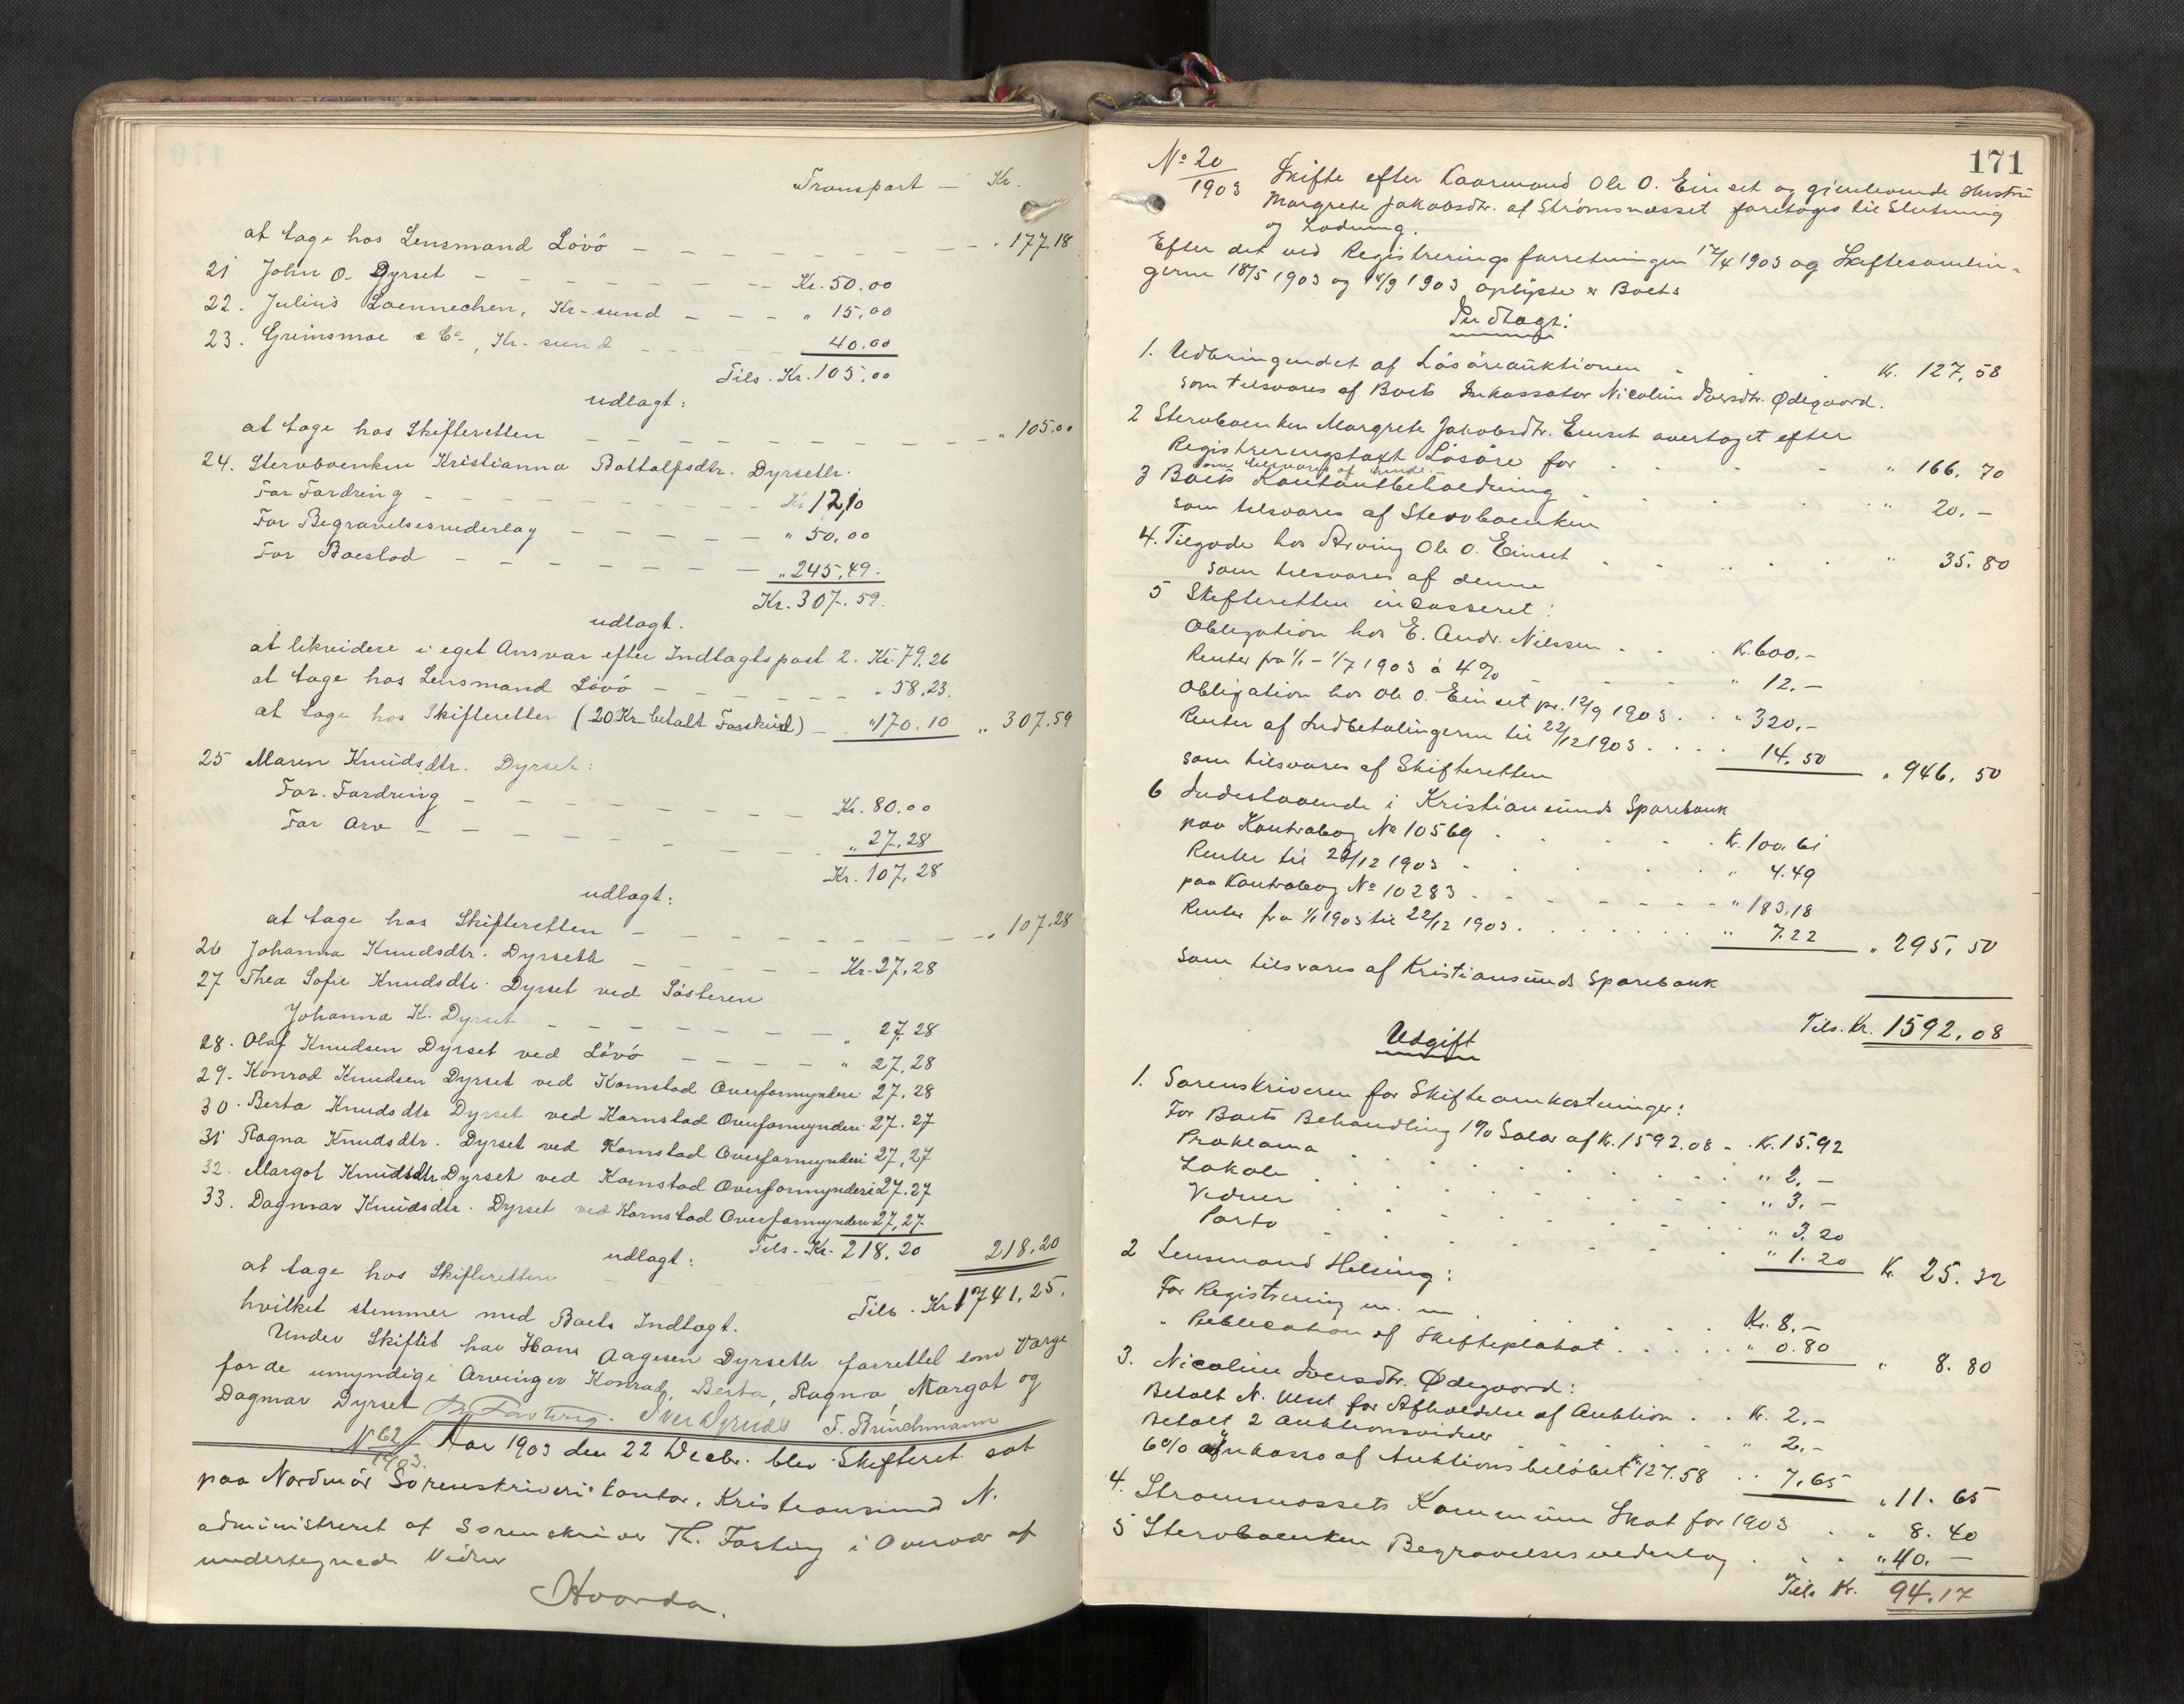 Transport — Kr.
at tage hos Lensmand Lövö — — — — — — — — „ 177.18
21 John O. Dyrset — — — — — — Kr. 50.00
22. Julius Loennechen, Kr-sund — — — „ 15,00
23. Grimsmoe & Co, Kr.-sund — — — 40.00
Tils. Kr. 105,00
udlagt:
at tage hos Skifteretten — — — — — — — — — „ 105.00
24. Stervboenken Kristianna Bottolfsdtr. Dyrseth.
For Fordring — — — — — — — Kr. 12,10
For Begravelsesvederlag — — — — — „ 50,00
For Boeslod — — — — — — — „ 245,49.
Kr. 307.59.
udlagt.
at likvidere i eget Ansvar efter Indtægtspost 2. Kr. 79,26
at tage hos Lensmand Lövö — — — — — — „ 58,23.
at tage hos Skifteretten (20 Kr betalt Forskud) — „ 170.10 „ 307.59
25 Maren Knudsdtr. Dyrset:
For Fordring — — — — — — — Kr. 80.00
For Arv — — — — — — — „ 27,28
Kr. 107,28
udlagt:
at tage hos Skifteretten — — — — — — — — „ 107.28
26 Johanna Knudsdtr. Dyrseth — — — — — Kr. 27,28
27 Thea Sofie Knudsdtr. Dyrset ved Sösteren
Johanna K. Dyrset — — — — — — „ 27,28
28. Olaf Knudsen Dyrset ved Lövö — — — — „ 27,28
29. Konrad Knudsen Dyrset ved Kornstad Overformynderi 27,28
30. Berta Knudsdtr Dyrset ved Kornstad Overformynderi 27.27
31 Ragna Knudsdtr. Dyrset ved Kornstad Overformynderi 27,27
32. Margot Knudsdtr Dyrset ved Kornstad Overformynderi 27.27
33. Dagmar Knudsdtr. Dyrset ved Kornstad Overformynderi 27,27.
udlagt: Tils. Kr. 218,20
at tage hos Skifteretten — — 218,20
Tils. Kr 1741,25.
hvilket stemmer med Boets Indtægt.
Under Skiftet har Hans Aagesen Dyrseth forrettet som Værge
for de umyndige Arvinger Konrad, Berta, Ragna, Margot og
Dagmar Dyrset Th. Fasting. F. Brinchmann
No 62/1903. Aar 1903 den 22 Decbr. blev Skifteret sat
paa Nordmör Sorenskriveri kontor, Kristiansund N.
administreret af Sorenskriver Th. Fasting i Overvær af
undertegnede Vidner
171
No 20/1903 Skifte efter Kaarmand Ole O. Einset og gjenlevende Hustru
Margrete Jakobsdtr. af Strömsnæsset foretages til Slutning
og Lodning.
Efter det ved Registreringsforretningen 17/4 1903 og Skiftesamlin-
gerne 18/5 1903 og 14/9 1903 oplyste er Boets
Indtægt:
1. Udbringendet af Lösöreauktionen . . . K. 127,58
som tilsvares af Boets Inkassator Nicoline Iversdtr. Ødegaard.
2 Stervboenken Margrete Jakobsdtr. Einset overtaget efter
Registreringstakst Lösöre for . . . „ 166. 70
som tilsvares af hende.
3 Boets Kontantbeholdning . . . „ 20.—
som tilsvares af Stervboenken
4. Tilgode hos Arving Ole O. Einset . . . „ 35.80
som tilsvares af denne
5 Skifteretten incasseret:
Obligation hos E. Andr. Nilssen . . . K. 600.—
Renter fra 1/1 – 1/7 1903 à 4% . . „ 12.—
Obligation hos Ole O. Einset pr. 12/9 1903 . . „ 320,—
Renter af Indbetalingerne til 22/12 1903 . . . . 14,50
som tilsvares af Skifteretten „ 946. 50
6 Indestaaende i Kristiansunds Sparebank
paa Kontrabog No 10569 . . . K. 100.61
Renter til 22/12 1903 . . . „ 4.49
paa Kontrabog No 10283 . . . „ 183.18
Renter fra 1/1 1903 til 22/12 1903 . . . „ 7.22 „ 295,50
som tilsvares af Kristiansunds Sparebank
Tils. Kr. 1592,08
Udgift
1. Sorenskriveren for Skifteomkostninger:
For Boets Behandling 1% Salær af K. 1592.08 – . K. 15.92
Proklama . . . „ 2,—
Lokale . . . „ 3.—
Vidner . . . „ 3,20
Porto . . . „ 1.20 K. 25.32
2 Lensmand Helsing:
For Registrering m. m . . . Kr. 8.—
„ Publication af Skifteplakat . . . „ 0.80 „ 8.80
3. Nicoline Iversdtr. Ødegaard:
Betalt N. for Afholdelse af Auktion . . K. 2.—
Betalt 2 Auktionsvidner „ 2.—
6% Inkasso af Auktionsbelöbet K 127.58 . . 7,65 „ 11.65
4. Strømsnæssets Kommune Skat for 1903 . „ 8.40
5 Stervboenken Begravelsesvederlag . . . „ 40.—
Tils Kr. 94.17